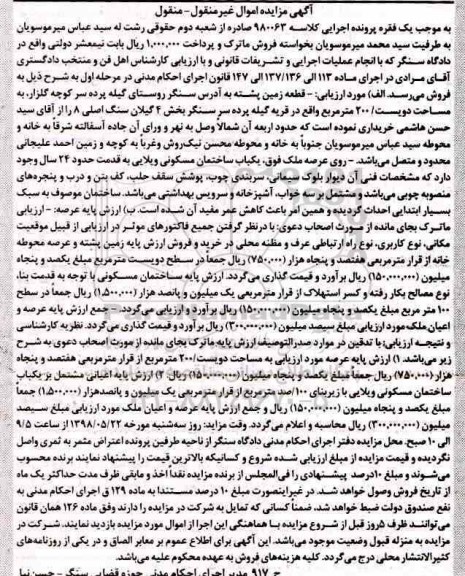 آگهی مزایده اموال غیرمنقول-منقول
به موجب یک فقره پرونده اجرایی کلاسه ۹۸۰۰۶۳ صادره از شعبه دوم حقوقی رشت له سید عباس میرموسویان
به طرفیت سید محمد میرموسویان بخواسته فروش ماترک و پرداخت ۱٬۰۰۰٬۰۰۰ ریال بابت نیمعشر دولتی واقع در
دادگاه سنگر که با انجام عملیات اجرایی و تشریفات قانونی و با ارزیابی کارشناس اهل فن و منتخب دادگستری
آقای مرادی در اجرای ماده ۱۱۳ الی ۱۳۶/۱۳۷ الی ۱۴۷ قانون اجرای احکام مدنی در مرحله اول به شرح ذیل به
فروش می‌رسد. الف) مورد ارزیابی: - قطعه زمین پشته به آدرس سنگر روستای گیله پرده سر کوچه گلزار، به
مساحت دویست/ ۲۰۰ مترمربع واقع در قریه گیله پرده سر سنگر بخش ۴ گیلان سنگ اصلی ۸ را از آقای سید
حسن هاشمی خریداری نموده است که حدود اربعه آن شمالاً وصل به نهر و ورای آن جاده آسفالته شرقاً به خانه و
محوطه سید عباس میرموسویان جنوباً به خانه و محوطه محسن نیک‌روش وغرباً به کوچه و زمین احمد علیجانی
محدود و متصل می‌باشد. - روی عرصه ملک فوق، یکباب ساختمان مسکونی ویلایی به قدمت حدود ۲۴ سال وجود
دارد که مشخصات فنی آن دیوار بلوک سیمانی، سربندی چوب، پوشش سقف حلب، کف بتن و درب و پنجره‌های
منصوبه چوبی می‌باشد و مشتمل بر سه خواب، آشپزخانه و سرویس بهداشتی می‌باشد. ساختمان موصوف به سبک
بسیار ابتدایی احداث گردیده و همین امر باعث کاهش عمر مفید آن شده است. ب) ارزش پایه عرصه: - ارزیابی
ماترک بجای مانده از صورت اصحاب دعوی: با درنظر گرفتن جمیع فاکتورهای موثر در ارزیابی از قبیل موقعیت
مکانی، نوع کاربری، نوع راه ارتباطی عرف و مظنه محلی در خرید و فروش ارزش پایه زمین پشته و عرصه محوطه
خانه از قرار مترمربعی هفتصد و پنجاه هزار (۷۵۰٬۰۰۰) ریال جمعاً در سطح دویست مترمربع مبلغ یکصد و پنجاه
میلیون (۱۵۰٬۰۰۰٬۰۰۰) ریال برآورد و قیمت گذاری می‌گردد. ارزش پایه ساختمان مسکونی با توجه به قدمت بنا،
نوع مصالح بکار رفته و کسر استهلاک از قرار مترمربعی یک میلیون و پانصد هزار (۱٬۵۰۰٬۰۰۰) ریال جمعاً در سطح
۱۰۰ متر مربع مبلغ یکصد و پنجاه میلیون (۱۵۰٬۰۰۰٬۰۰۰) ریال برآورد و ارزیابی می‌گردد. - جمع ارزش پایه عرصه و
اعیان ملک مورد ارزیابی مبلغ سیصد میلیون (۳۰۰٬۰۰۰٬۰۰۰) ریال برآورد و قیمت گذاری می‌گردد. نظر به کارشناسی
و نتیجه ارزیابی: با تدقین در موارد صدرالتوصیف ارزش پایه ماترک بجای مانده از مورث اصحاب دعوی به شرح
زیر می‌باشد. ۱) ارزش پایه عرصه مورد ارزیابی به مساحت دویست/ ۲۰۰ مترمربع از قرار مترمربعی هفتصد و پنجاه
هزار (۷۵۰٬۰۰۰) ریال جمعاً مبلغ یکصد و پنجاه میلیون (۱۵۰٬۰۰۰٬۰۰۰) ریال ۲) ارزش پایه اعیانی مشتمل بر یکباب
ساختمان مسکونی ویلایی با زیربنای ۱۰۰/صد مترمربع از قرار مترمربعی یک میلیون و پانصدهزار (۱٬۵۰۰٬۰۰۰) جمعاً
مبلغ یکصد و پنجاه میلیون (۱۵۰٬۰۰۰٬۰۰۰) ریال و جمع ارزش پایه عرصه و اعیان ملک مورد ارزیابی مبلغ سیصد
میلیون (۳۰۰٬۰۰۰٬۰۰۰) ریال محاسبه و اعلام می‌گردد. وقت مزایده: روز سه‌شنبه مورخه ۱۳۹۸/۰۵/۲۲ از ساعت ۹/۵
الی ۱۰ صبح. محل مزایده دفتر اجرای احکام مدنی دادگاه سنگر از ناحیه طرفین پرونده اعتراض مثمر به ثمری واصل
نگردیده و قیمت مزایده از مبلغ ارزیابی شده شروع و کسانیکه بالاترین قیمت را پیشنهاد نمایند برنده محسوب
می‌شوند و مبلغ ۱۰درصد پیشنهادی را فی‌المجلس از برنده مزایده نقداً اخذ و مابقی ظرف مدت حداکثر یک ماه
از تاریخ فروش وصول خواهد شد. در غیراینصورت مبلغ ۱۰ درصد مستندا به ماده ۱۲۹ ق اجرای احکام مدنی به
نفع صندوق دولت ضبط خواهد شد. ضمناً کسانی که تمایل به شرکت در مزایده را دارند وفق ماده ۱۲۶ همان قانون
می‌توانند ظرف ۵روز قبل از شروع مزایده با هماهنگی این اجرا از اموال مورد مزایده بازدید نمایند. شرکت در
مزایده به منزله قبول وضعیت موجود می‌باشد. این آگهی برای اطلاع عموم بر معابر الصاق و در یکی از روزنامه‌های
کثیرالانتشار محلی درج می‌گردد. کلیه هزینه‌های فروش به عهده محکوم علیه می‌باشد.
ح ۹۱۷ مدیر اجرای احکام مدنی حوزه قضایی سنگر - حسن نیا